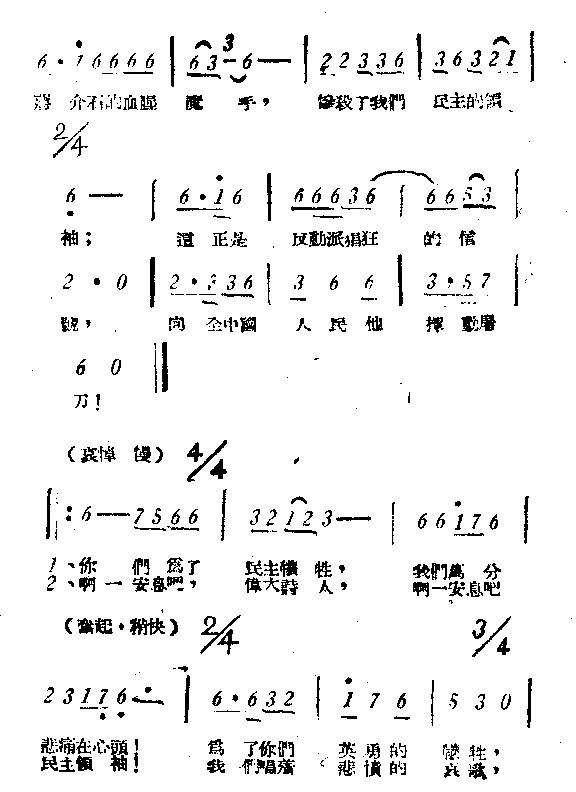 6·i6666 | 63 3 6— | 22336 | 36321 |
蔣介石的血腥魔手，慘殺了我們民主的領
2/4
6— | 6·i6 | 666366 | 6653 |
袖；這正是反動派猖狂的信
2·0 | 2·336 | 3 6 6 | 3·57 |
號，向全中國人民他揮動屠
6 0 ‖
刀！
（哀悼 慢） 4/4
‖: 6—7566 | 32123— | 66i76 |
1、你們爲了民主犧牲，我們萬分
2、啊一安息吧，偉大詩人，啊一安息吧
（奮起·稍快） 2/4 3/4
23176—· | 6·632 | i76 | 530 |
悲痛在心頭！爲了你們英勇的犧牲，
民主領袖！我們唱落悲憤的哀歌，